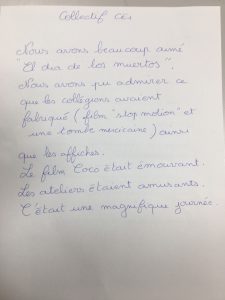 Collectif CE1
Nous avons beaucoup aimé
"El dia de los muertos".
Nous avons pu admirer ce
que les collégiens avaient
fabriqué (film "stop motion" et
une tombe mexicaine) ainsi
que les affiches.
Le film Coco était émouvant.
Les ateliers étaient amusants.
C'était une magnifique journée.